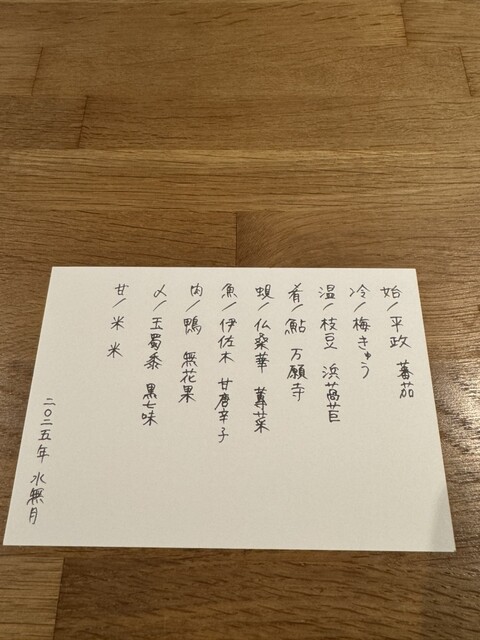 始/平政 蕃茄
冷/梅きゅう
温/枝豆 浜萵苣
肴/鮎 万願寺
蜆/仏桑華 蓴菜
魚/伊佐木 甘唐辛子
肉/鴨 無花果
〆/玉蜀黍 黒七味
甘/米 米
二〇二五年 水無月